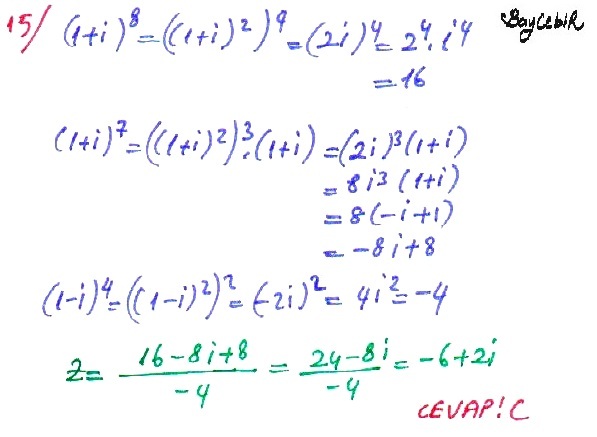 15/ (1+i)⁸ = ((1+i)²)⁴ = (2i)⁴ = 2⁴.i⁴
BayCebiR
= 16
(1+i)⁷ = ((1+i)²)³.(1+i) = (2i)³(1+i)
= 8i³ (1+i)
= 8(-i+1)
= -8i+8
(1-i)⁴ = ((1-i)²)² = (-2i)² = 4i² = -4
z = (16-8i+8)/(-4) = (24-8i)/(-4) = -6+2i
CEVAP! C